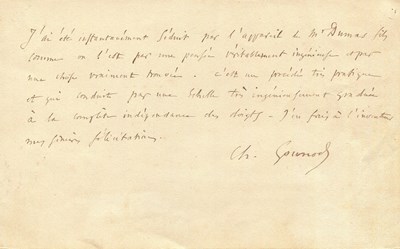 J'ai été instantanément séduit par l'appareil de Mr Dumas fils
comme on l'est par une pensée véritablement ingénieuse et par
une chose vraiment trouvée. C'est un procédé très pratique
et qui conduit par une échelle très ingénieusement graduée
à la complète indépendance des doigts. J'en fais à l'inventeur
mes sincères félicitations.
Ch. Gounod